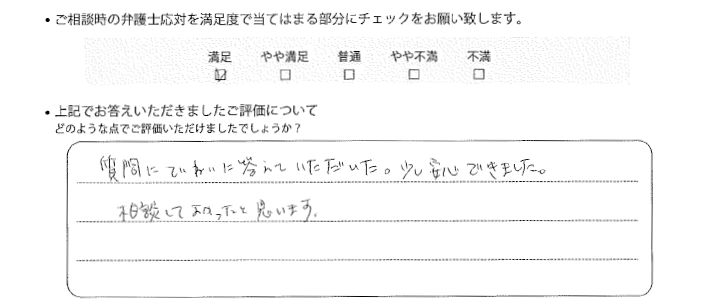 • ご相談時の弁護士応対を満足度で当てはまる部分にチェックをお願い致します。
満足 やや満足 普通 やや不満 不満
☑ □ □ □ □
• 上記でお答えいただきましたご評価について
どのような点でご評価いただけましたでしょうか？
質問にていねいに答えていただいた。少し安心できました。
相談してよかったと思います。